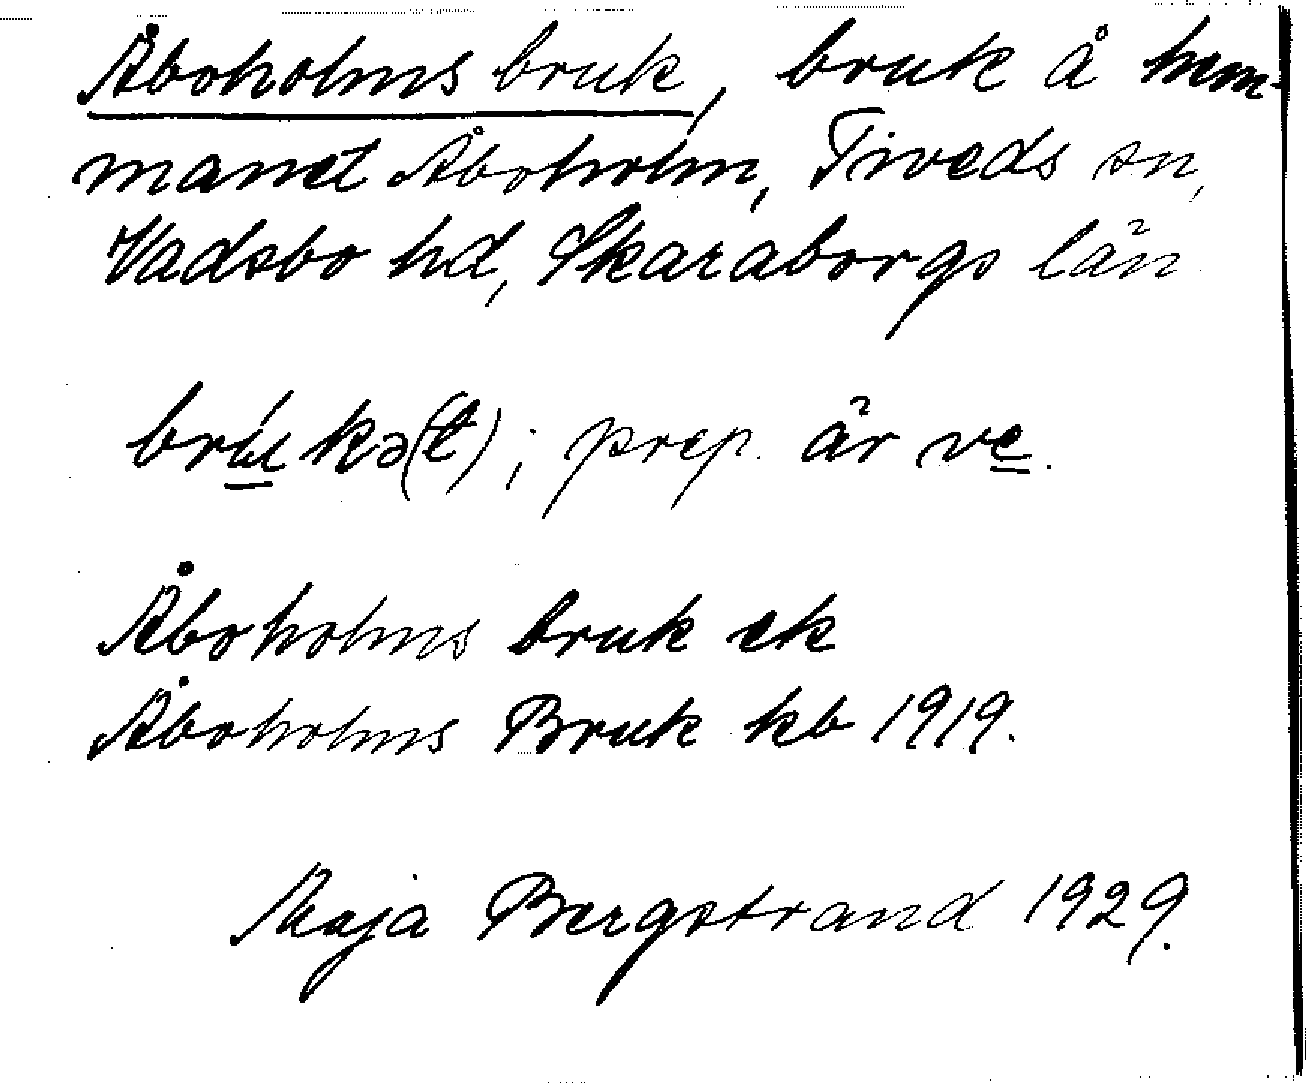 Åboholms bruk, bruk å hem-
manet Åboholm, Tiveds sn,
Vadsbo hd, Skaraborgs län
brúkə(t); prep. är ve.
Åboholms bruk ek
Åboholms Bruk kb 1919.
Maja Bergstrand 1929.